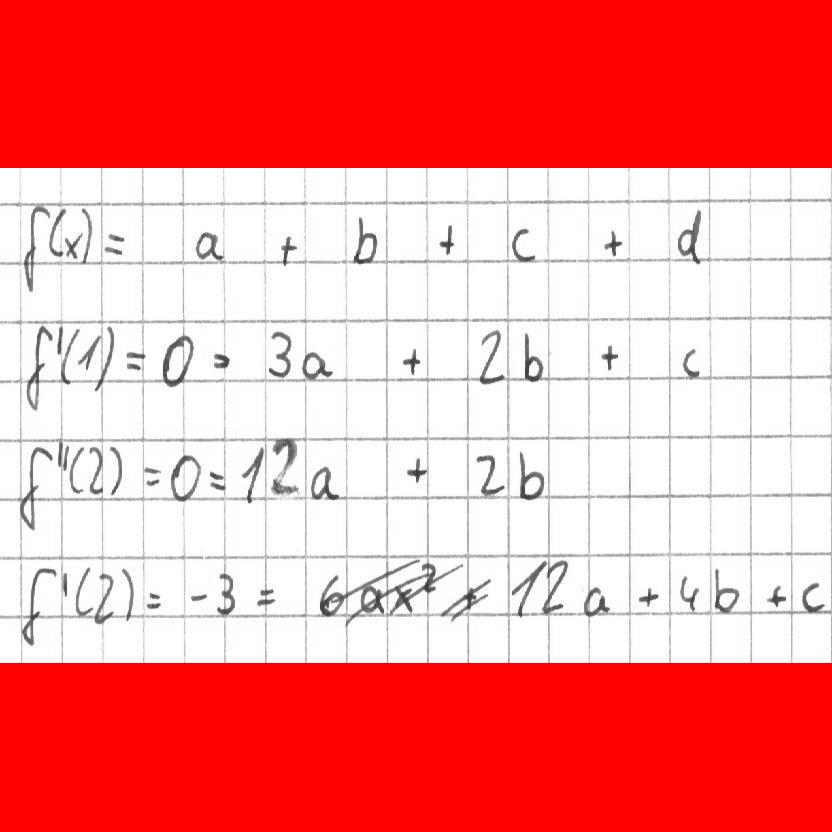 f(x) = a + b + c + d
f'(1) = 0 = 3a + 2b + c
f''(2) = 0 = 12a + 2b
f'(2) = -3 = 6ax² + 12a + 4b + c